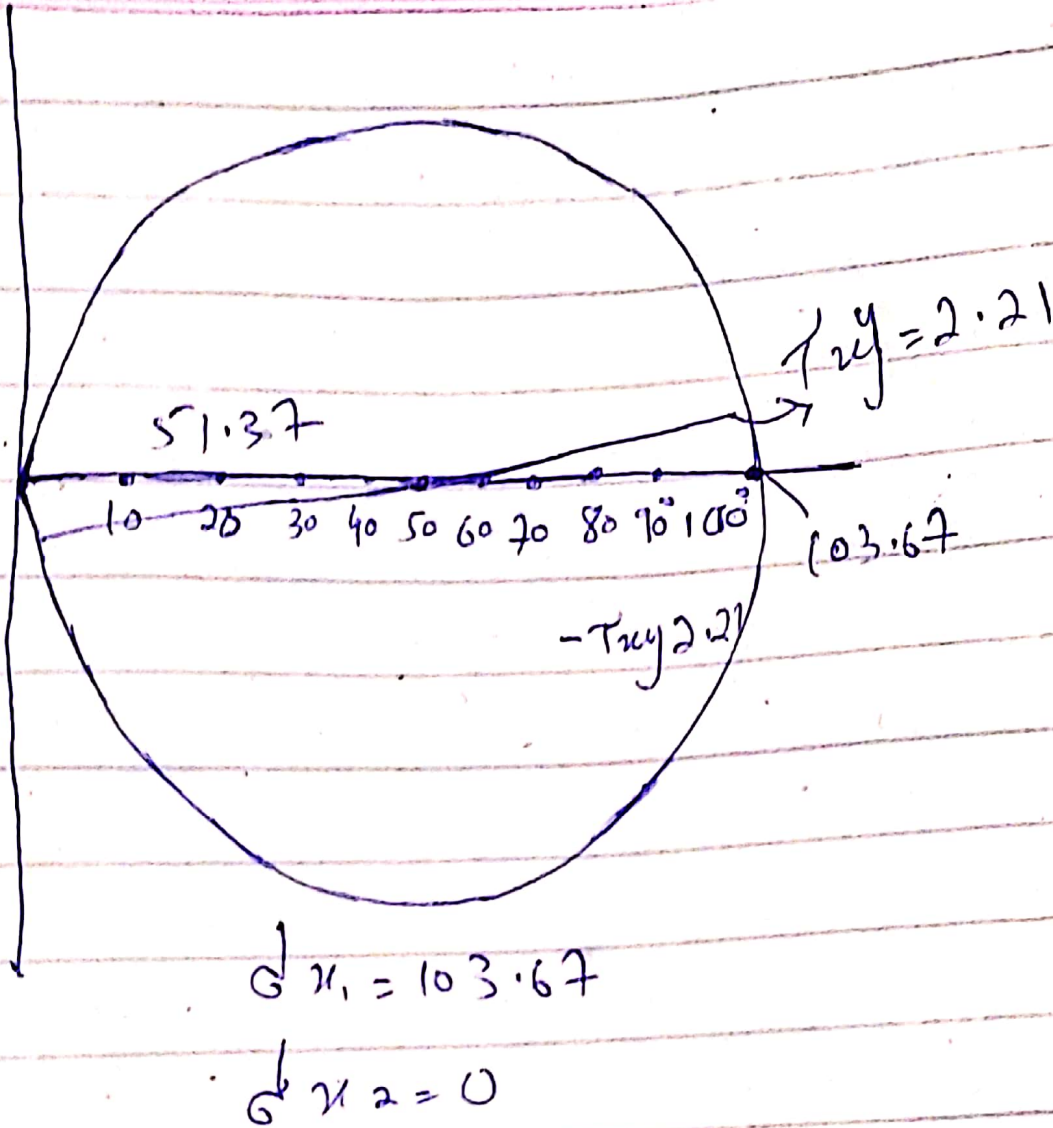 τxy = 2.21
51.37
10 20 30 40 50 60 70 80 90 100
103.67
-τxy 2.21
σx₁ = 103.67
σx2 = 0